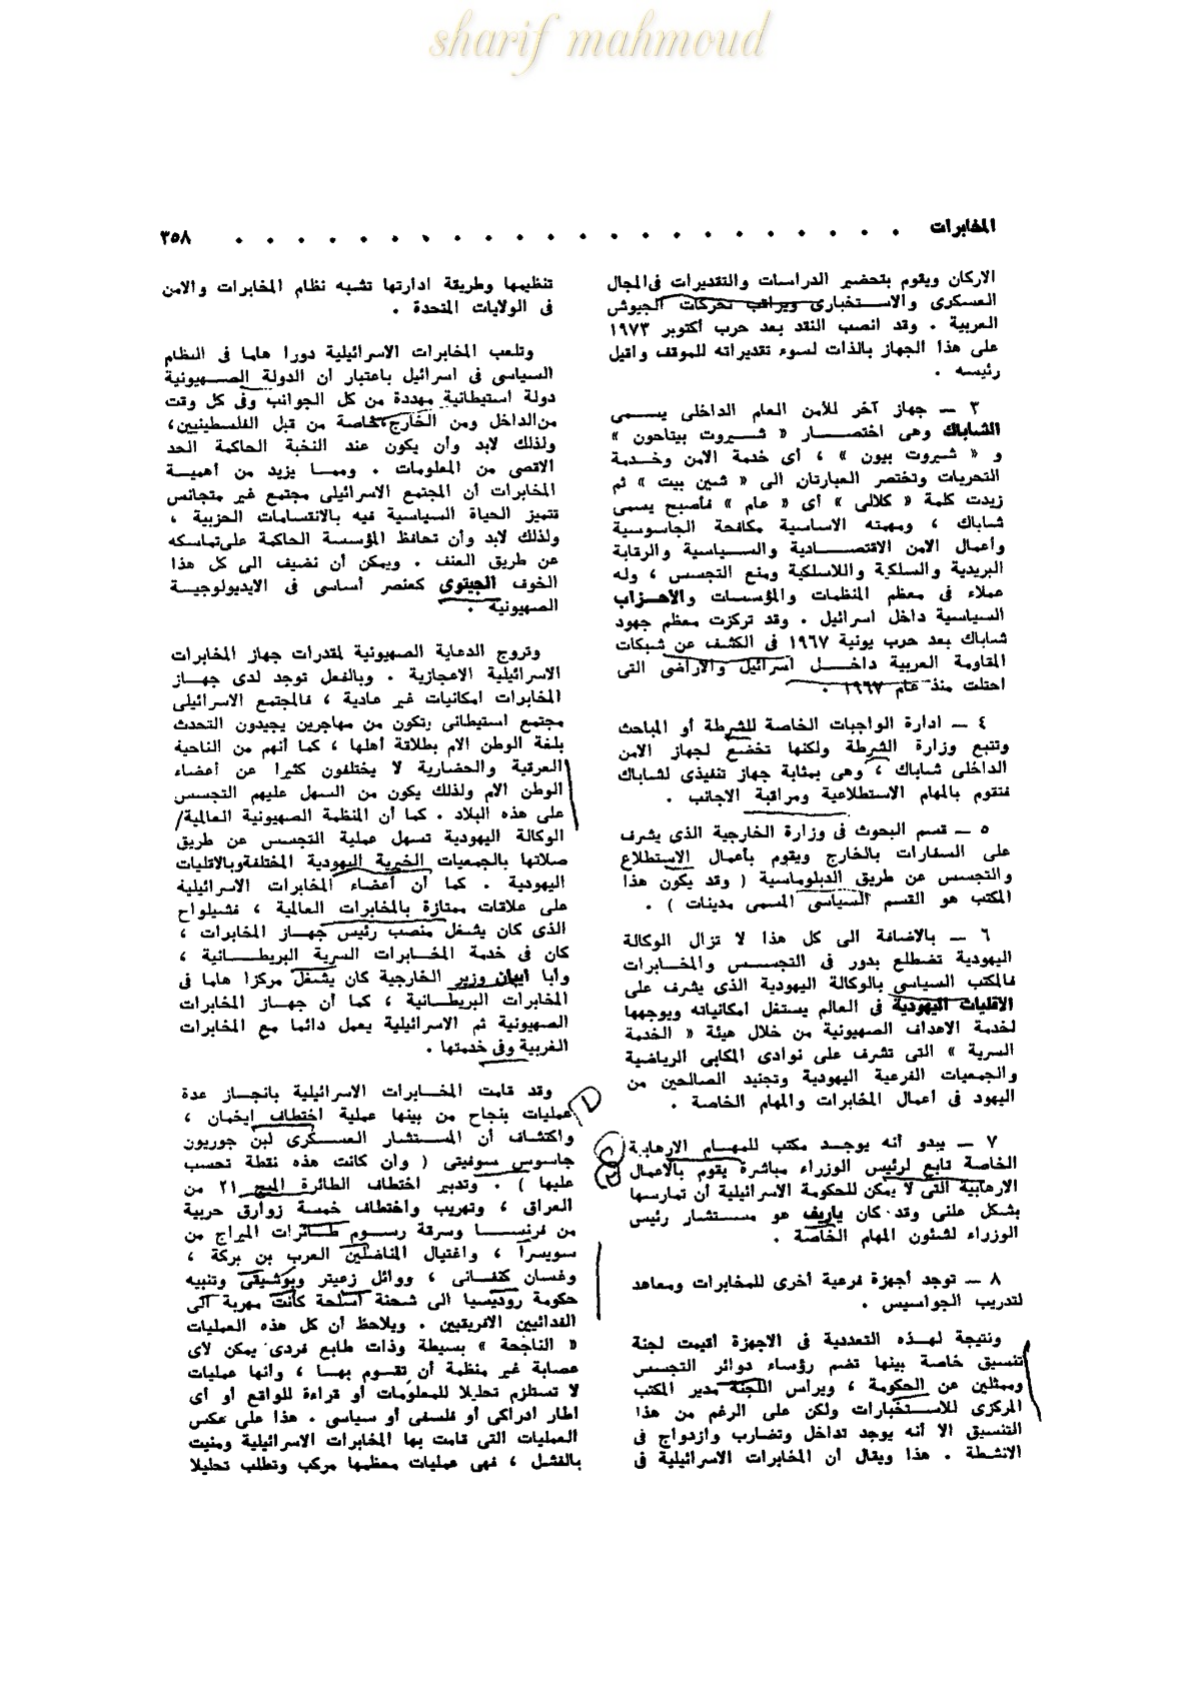 sharif mahmoud
المخابرات
٣٥٨
الاركان ويقوم بتحضير الدراسات والتقديرات فى المجال
العسكرى والاستخبارى ويراقب تحركات الجيوش
العربية . وقد انصب النقد بعد حرب أكتوبر ١٩٧٣
على هذا الجهاز بالذات لسوء تقديراته للموقف واقيل
رئيسه .
٣ ــ جهاز آخر للأمن العام الداخلى يسمى
الشاباك وهى اختصار « شيروت بيتاحون »
و « شيروت بيون » ، أى خدمة الامن وخدمة
التحريات وتختصر العبارتان الى « شين بيت » ثم
زيدت كلمة « كلالى » أى « عام » فأصبح يسمى
شاباك ، ومهمته الاساسية مكافحة الجاسوسية
وأعمال الامن الاقتصادية والسياسية والرقابة
البريدية والسلكية واللاسلكية ومنع التجسس ، وله
عملاء فى معظم المنظمات والمؤسسات والاحزاب
السياسية داخل اسرائيل . وقد تركزت معظم جهود
شاباك بعد حرب يونية ١٩٦٧ فى الكشف عن شبكات
المقاومة العربية داخل اسرائيل والاراضى التى
احتلت منذ عام ١٩٦٧ .
٤ ــ ادارة الواجبات الخاصة للشرطة أو المباحث
وتتبع وزارة الشرطة ولكنها تخضع لجهاز الامن
الداخلى شاباك ، وهى بمثابة جهاز تنفيذى لشاباك
فتقوم بالمهام الاستطلاعية ومراقبة الاجانب .
٥ ــ قسم البحوث فى وزارة الخارجية الذى يشرف
على السفارات بالخارج ويقوم بأعمال الاستطلاع
والتجسس عن طريق الدبلوماسية ( وقد يكون هذا
المكتب هو القسم السياسى المسمى مدينات ) .
٦ ــ بالاضافة الى كل هذا لا تزال الوكالة
اليهودية تضطلع بدور فى التجسس والمخابرات
فالمكتب السياسى بالوكالة اليهودية الذى يشرف على
الاقليات اليهودية فى العالم يستغل امكانياته ويوجهها
لخدمة الاهداف الصهيونية من خلال هيئة « الخدمة
السرية » التى تشرف على نوادى المكابى الرياضية
والجمعيات الفرعية اليهودية وتجنيد الصالحين من
اليهود فى أعمال المخابرات والمهام الخاصة .
٧ ــ يبدو أنه يوجد مكتب للمهام الارهابية
الخاصة تابع لرئيس الوزراء مباشرة يقوم بالاعمال
الارهابية التى لا يمكن للحكومة الاسرائيلية أن تمارسها
بشكل علنى وقد كان ياريف هو مستشار رئيس
الوزراء لشئون المهام الخاصة .
٨ ــ توجد أجهزة فرعية أخرى للمخابرات ومعاهد
لتدريب الجواسيس .
ونتيجة لهذه التعددية فى الاجهزة أقيمت لجنة
تنسيق خاصة بينها تضم رؤساء دوائر التجسس
وممثلين عن الحكومة ، ويراس اللجنة مدير المكتب
المركزى للاستخبارات ولكن على الرغم من هذا
التنسيق الا أنه يوجد تداخل وتضارب وازدواج فى
الانشطة . هذا ويقال أن المخابرات الاسرائيلية فى
تنظيمها وطريقة ادارتها تشبه نظام المخابرات والامن
فى الولايات المتحدة .
وتلعب المخابرات الاسرائيلية دورا هاما فى النظام
السياسى فى اسرائيل باعتبار أن الدولة الصهيونية
دولة استيطانية مهددة من كل الجوانب وفى كل وقت
من الداخل ومن الخارج خاصة من قبل الفلسطينيين،
ولذلك لابد وأن يكون عند النخبة الحاكمة الحد
الاقصى من المعلومات . ومما يزيد من أهمية
المخابرات أن المجتمع الاسرائيلى مجتمع غير متجانس
تتميز الحياة السياسية فيه بالانقسامات الحزبية ،
ولذلك لابد وأن تحافظ المؤسسة الحاكمة على تماسكه
عن طريق العنف . ويمكن أن نضيف الى كل هذا
الخوف الجيتوى كعنصر أساسى فى الايديولوجية
الصهيونية .
وتروج الدعاية الصهيونية لمقدرات جهاز المخابرات
الاسرائيلية الاعجازية . وبالفعل توجد لدى جهاز
المخابرات امكانيات غير عادية ، فالمجتمع الاسرائيلى
مجتمع استيطانى يتكون من مهاجرين يجيدون التحدث
بلغة الوطن الام بطلاقة أهلها ، كما أنهم من الناحية
العرقية والحضارية لا يختلفون كثيرا عن أعضاء
الوطن الام ولذلك يكون من السهل عليهم التجسس
على هذه البلاد . كما أن المنظمة الصهيونية العالمية/
الوكالة اليهودية تسهل عملية التجسس عن طريق
صلاتها بالجمعيات الخيرية اليهودية المختلفة وبالاقليات
اليهودية . كما أن أعضاء المخابرات الاسرائيلية
على علاقات ممتازة بالمخابرات العالمية ، فشيلواح
الذى كان يشغل منصب رئيس جهاز المخابرات ،
كان فى خدمة المخابرات السرية البريطانية ،
وأبا ايبان وزير الخارجية كان يشغل مركزا هاما فى
المخابرات البريطانية ، كما أن جهاز المخابرات
الصهيونية ثم الاسرائيلية يعمل دائما مع المخابرات
الغربية وفى خدمتها .
وقد قامت المخابرات الاسرائيلية بانجاز عدة
عمليات بنجاح من بينها عملية اختطاف ايخمان ،
واكتشاف أن المستشار العسكرى لبن جوريون
جاسوس سوفيتى ( وأن كانت هذه نقطة تحسب
عليها ) . وتدبير اختطاف الطائرة الميج ٢١ من
العراق ، وتهريب واختطاف خمسة زوارق حربية
من فرنسا وسرقة رسوم طائرات الميراج من
سويسرا ، واغتيال المناضلين العرب بن بركة ،
وغسان كنفانى ، ووائل زعيتر وبوشيقى وتنبيه
حكومة روديسيا الى شحنة أسلحة كانت مهربة الى
الفدائيين الافريقيين . ويلاحظ أن كل هذه العمليات
« الناجحة » بسيطة وذات طابع فردى يمكن لاى
عصابة غير منظمة أن تقوم بها ، وأنها عمليات
لا تستلزم تحليلا للمعلومات أو قراءة للواقع أو أى
اطار أدراكى أو فلسفى أو سياسى . هذا على عكس
العمليات التى قامت بها المخابرات الاسرائيلية ومنيت
بالفشل ، فهى عمليات معظمها مركب وتطلب تحليلا